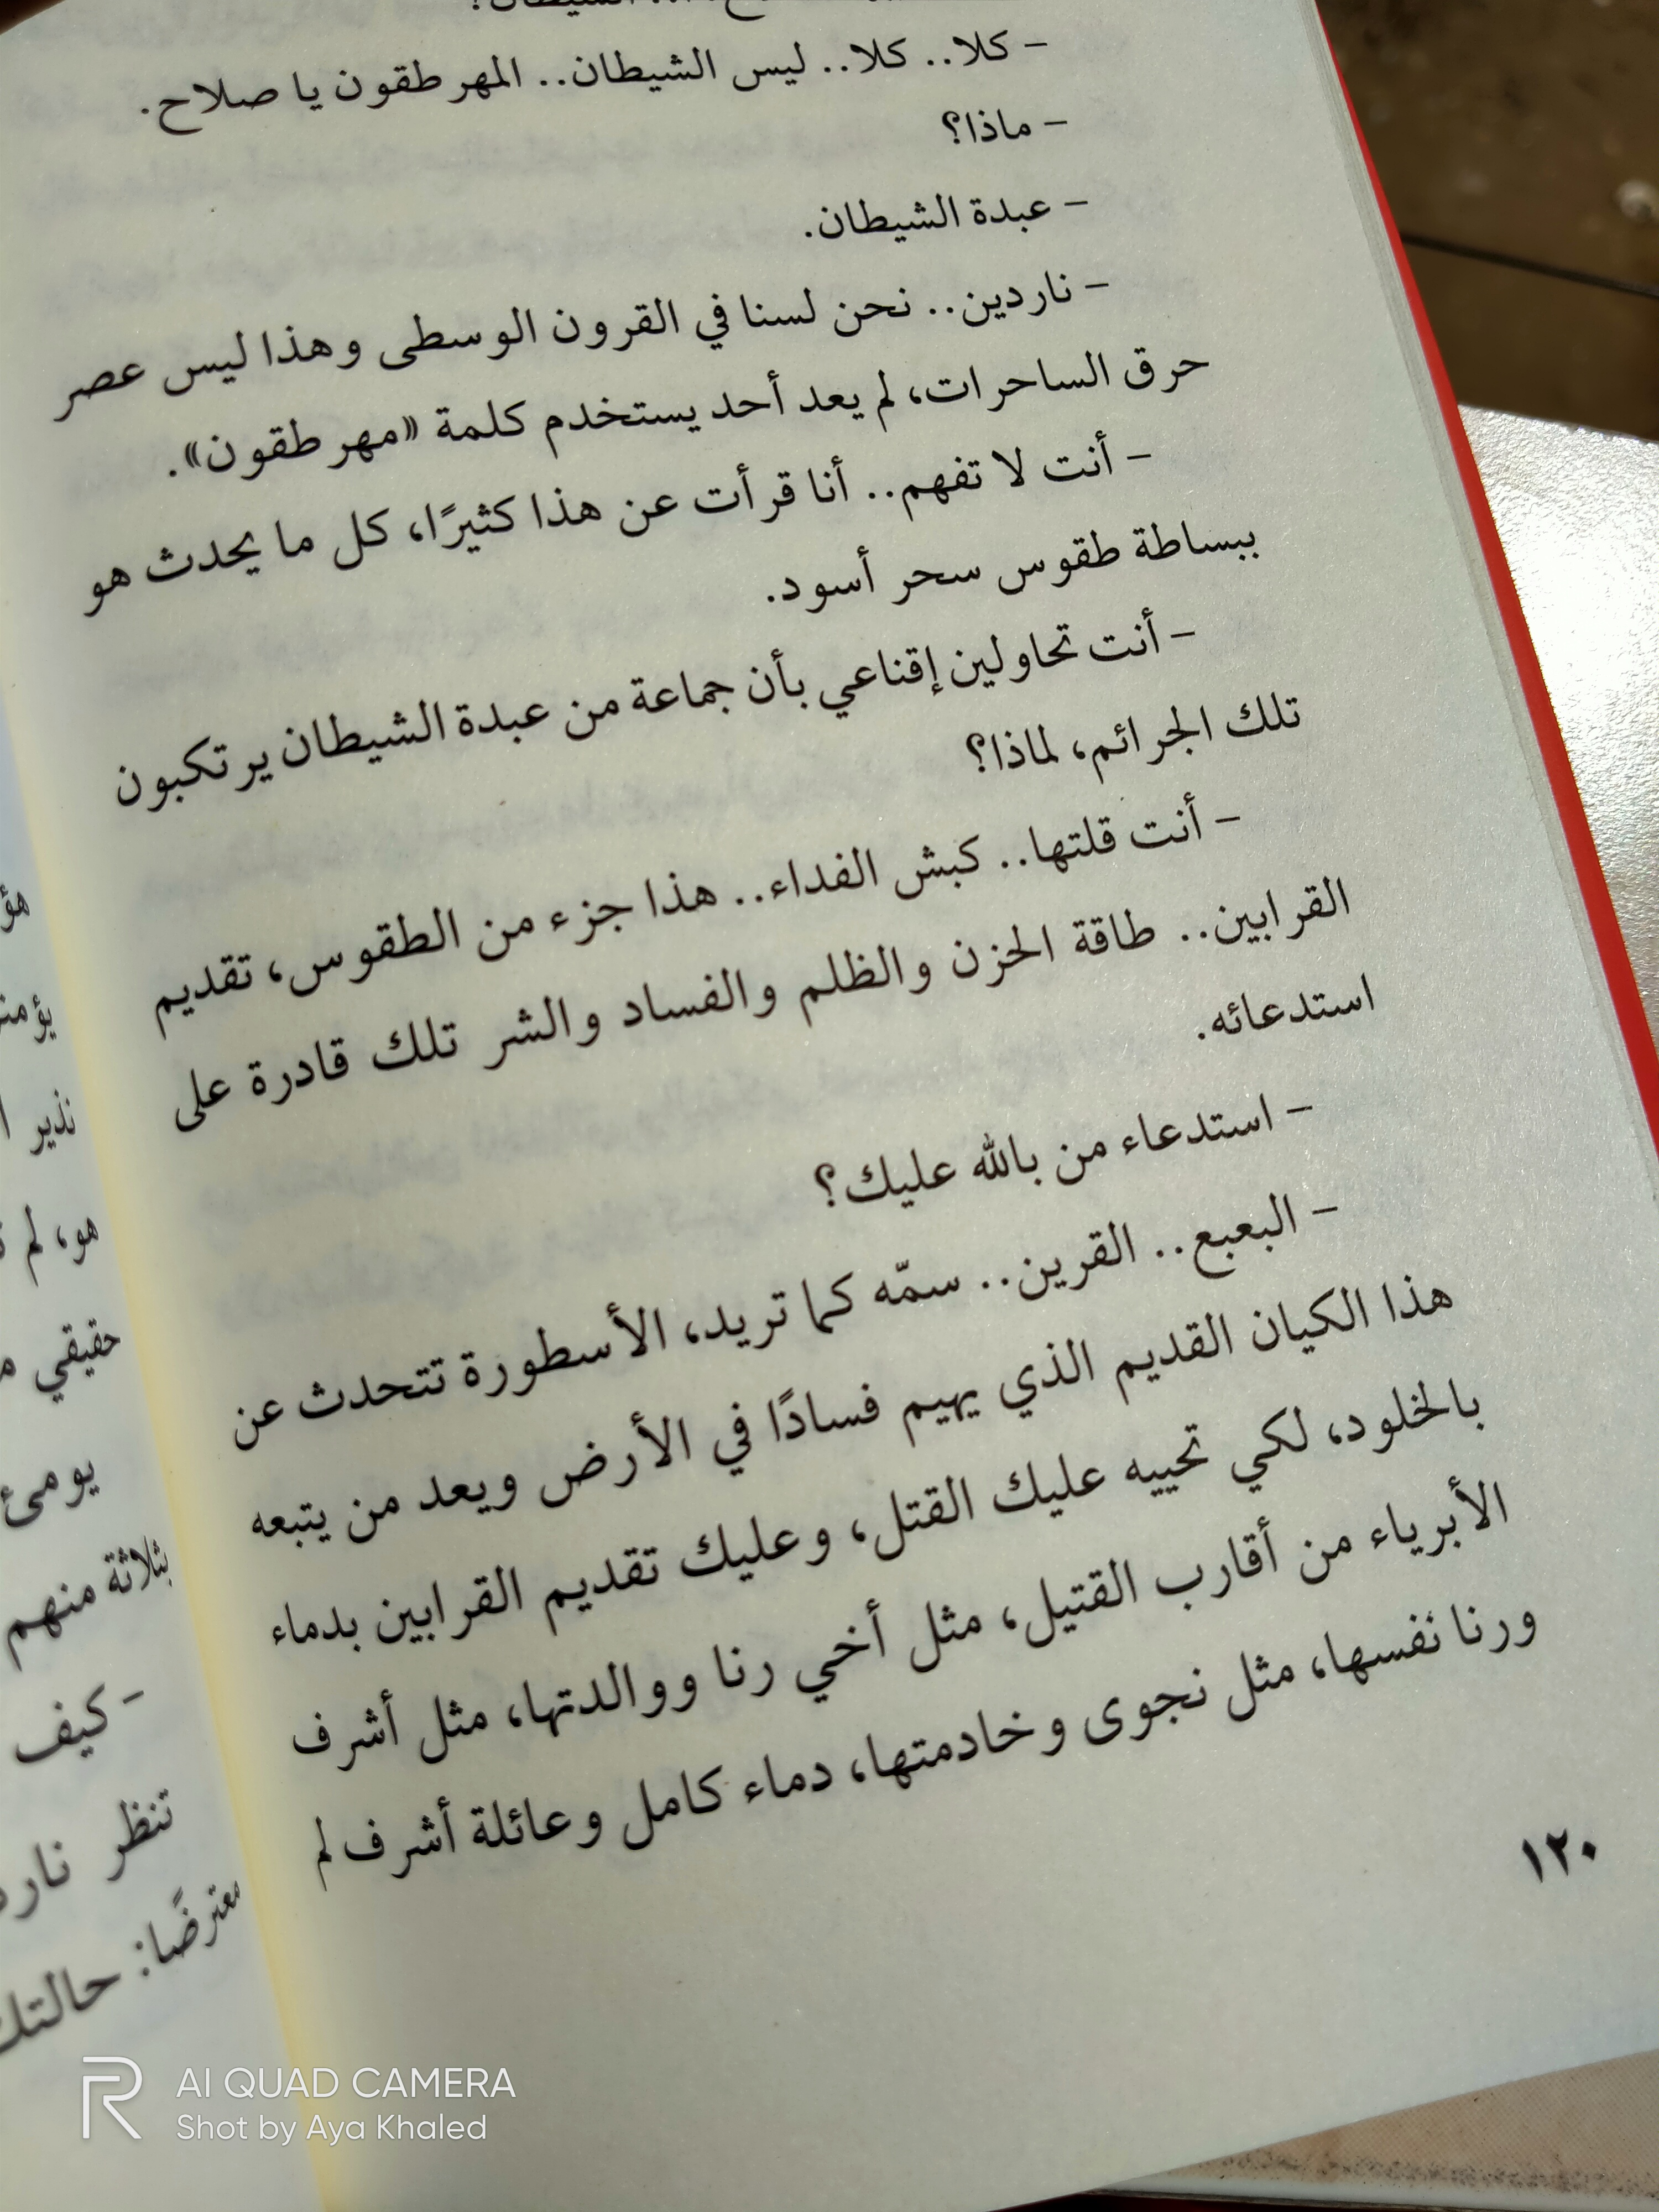 الشيطان؟
- كلا.. كلا.. ليس الشيطان.. المهرطقون يا صلاح.
- ماذا؟
- عبدة الشيطان.
- ناردين.. نحن لسنا في القرون الوسطى وهذا ليس عصر
حرق الساحرات، لم يعد أحد يستخدم كلمة «مهرطقون».
- أنت لا تفهم.. أنا قرأت عن هذا كثيرًا، كل ما يحدث هو
ببساطة طقوس سحر أسود.
- أنت تحاولين إقناعي بأن جماعة من عبدة الشيطان يرتكبون
تلك الجرائم، لماذا؟
- أنت قلتها.. كبش الفداء.. هذا جزء من الطقوس، تقديم
القرابين.. طاقة الحزن والظلم والفساد والشر تلك قادرة على
استدعائه.
- استدعاء من بالله عليك؟
- البعبع.. القرين.. سمّه كما تريد، الأسطورة تتحدث عن
هذا الكيان القديم الذي يهيم فسادًا في الأرض ويعد من يتبعه
بالخلود، لكي تحييه عليك القتل، وعليك تقديم القرابين بدماء
الأبرياء من أقارب القتيل، مثل أخي رنا ووالدتها، مثل أشرف
ورنا نفسها، مثل نجوى وخادمتها، دماء كامل وعائلة أشرف لم
١٢٠
نذير
هو، لم
حقيقي
بثلاثة منهم
- كيف
تنظر
معترضًا: حالتك
AI QUAD CAMERA
Shot by Aya Khaled